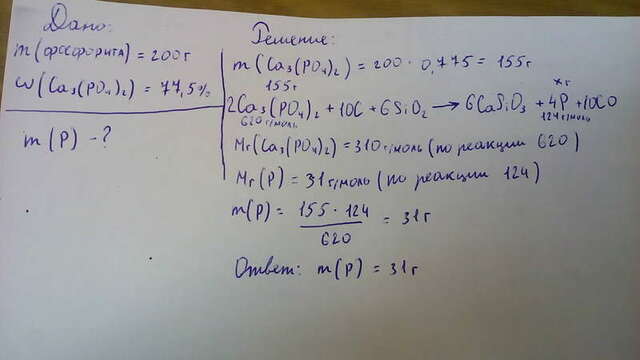 Дано:
m(фосфорита) = 200г
ω(Ca₃(PO₄)₂) = 77,5%
m(P) - ?
Решение:
m(Ca₃(PO₄)₂) = 200 · 0,775 = 155г
155г xг
2Ca₃(PO₄)₂ + 10C + 6SiO₂ → 6CaSiO₃ + 4P + 10CO
620г/моль 124г/моль
Mr(Ca₃(PO₄)₂) = 310г/моль (по реакции 620)
Mr(P) = 31г/моль (по реакции 124)
m(P) = 155 · 124 / 620 = 31г
Ответ: m(P) = 31г